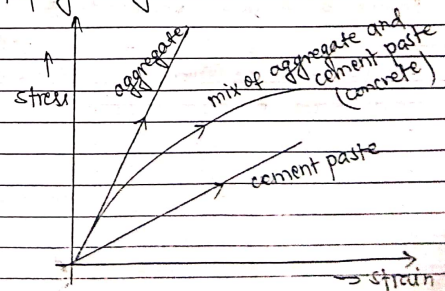 ↑
stress
aggregate
mix of aggregate and
cement paste
(concrete)
cement paste
→ strain